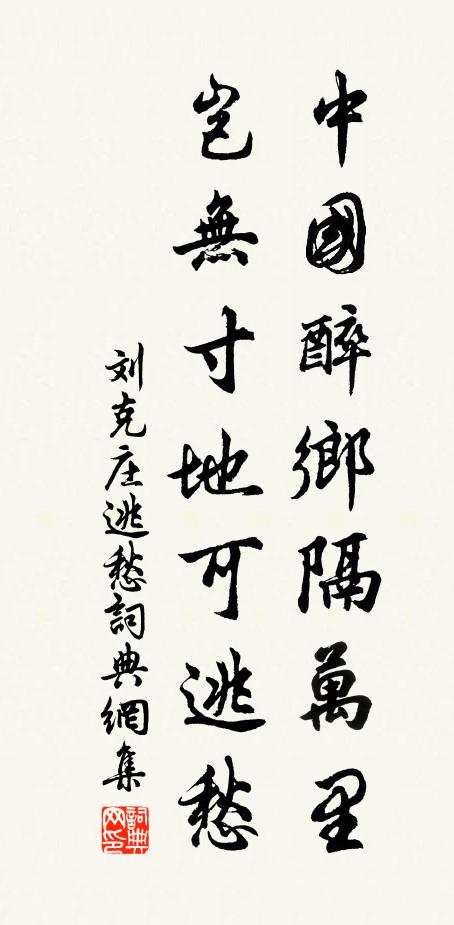 中國醉鄉隔萬里
豈無寸地可逃愁
刘克庄逃愁詞典網集
詞典网印